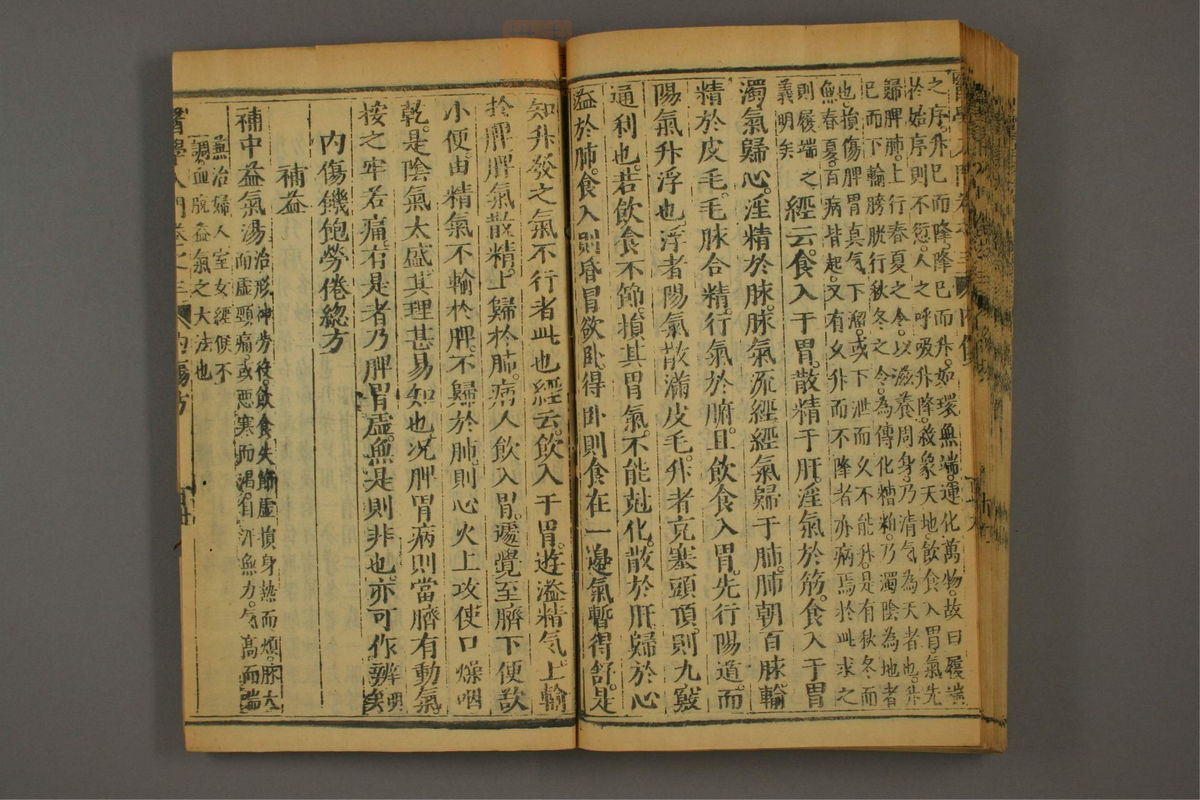 之序升已而降降已而升如環無端運化萬物故曰履端
於始序則不愆人之呼吸升降效象天地飲食入胃氣先
歸脾肺上行春夏之令以滋養周身乃清气為天者也升
已而下輸膀胱行秋冬之令為傳化糟粕乃濁陰為地者
也損傷脾胃真气下溜或下泄而久不能升是有秋冬而
無春夏百病皆起又有久升而不降者亦病焉於此求之
則履端之
義明矣
經云食入于胃散精于肝淫氣於筋食入于胃
濁氣歸心淫精於脉脉氣流經經氣歸于肺肺朝百脉輸
精於皮毛毛脉合精行氣於腑且飲食入胃先行陽道而
陽氣升浮也浮者陽氣散滿皮毛升者充塞頭頂則九竅
通利也若飲食不節損其胃氣不能尅化散於肝歸於心
溢於肺食入則昏冒欲卧得卧則食在一邊氣暫得舒是
知升發之氣不行者此也經云飲入于胃遊溢精氣上輸
於脾脾氣散精上歸於肺病人飲入胃遽覺至臍下便欲
小便由精氣不輸於脾不歸於肺則心火上攻使口燥咽
乾是陰氣太盛其理甚易知也况脾胃病則當臍有動氣
按之牢若痛有是者乃脾胃虛無是則非也亦可作辨明矣
內傷饑飽勞倦緫方
補益
補中益氣湯治形神勞役飲食失節虛損身熱而煩脉大
而虛頭痛或惡寒而渴自汗無力气高而喘
兼治婦人室女經候不
調血脫益氣之大法也
醫學入門卷之三 內傷方